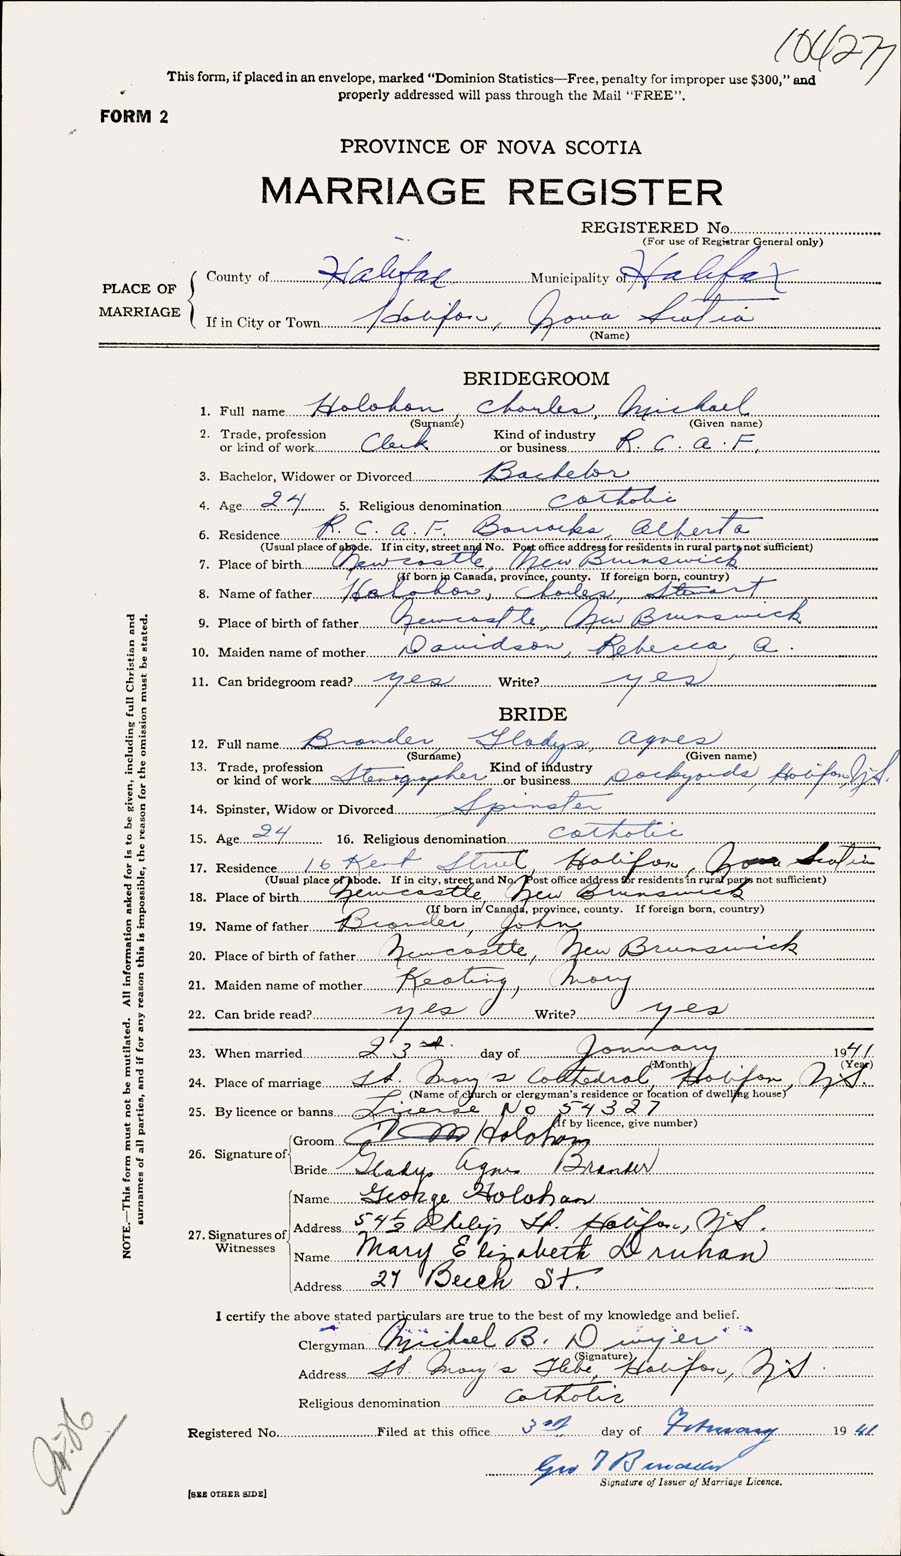 104277
This form, if placed in an envelope, marked "Dominion Statistics—Free, penalty for improper use $300," and
properly addressed will pass through the Mail "FREE".
FORM 2
PROVINCE OF NOVA SCOTIA
MARRIAGE REGISTER
REGISTERED No.
(For use of Registrar General only)
PLACE OF MARRIAGE
County of Halifax Municipality of Halifax
If in City or Town Halifax, Nova Scotia
(Name)
BRIDEGROOM
1. Full name Holohan, Charles, Michael
(Surname) (Given name)
2. Trade, profession or kind of work Clerk Kind of industry or business R.C.A.F.
3. Bachelor, Widower or Divorced Bachelor
4. Age 24 5. Religious denomination Catholic
6. Residence R.C.A.F. Barracks, Alberta
(Usual place of abode. If in city, street and No. Post office address for residents in rural parts not sufficient)
7. Place of birth Newcastle, New Brunswick
(If born in Canada, province, county. If foreign born, country)
8. Name of father Holohan, Charles, Stewart
9. Place of birth of father Newcastle, New Brunswick
10. Maiden name of mother Davidson, Rebecca, A.
11. Can bridegroom read? yes Write? yes
BRIDE
12. Full name Brander, Gladys, Agnes
(Surname) (Given name)
13. Trade, profession or kind of work Stenographer Kind of industry or business Dockyards, Halifax, N.S.
14. Spinster, Widow or Divorced Spinster
15. Age 24 16. Religious denomination Catholic
17. Residence 16 Kent Street, Halifax, Nova Scotia
(Usual place of abode. If in city, street and No. Post office address for residents in rural parts not sufficient)
18. Place of birth Newcastle, New Brunswick
(If born in Canada, province, county. If foreign born, country)
19. Name of father Brander, John
20. Place of birth of father Newcastle, New Brunswick
21. Maiden name of mother Keating, Mary
22. Can bride read? yes Write? yes
23. When married 23rd. day of January 1941
(Month) (Year)
24. Place of marriage St. Mary's Cathedral, Halifax, N.S.
(Name of church or clergyman's residence or location of dwelling house)
25. By licence or banns License No 54327
(If by licence, give number)
26. Signature of
Groom C M Holohan
Bride Gladys Agnes Brander
27. Signatures of Witnesses
Name George Holohan
Address 54½ Philip St. Halifax, N.S.
Name Mary Elizabeth Druhan
Address 27 Beech St.
I certify the above stated particulars are true to the best of my knowledge and belief.
Clergyman Michael B. Dwyer
(Signature)
Address St. Mary's Glebe, Halifax, N.S.
Religious denomination Catholic
Registered No. Filed at this office 3rd day of February 1941
Geo T
Signature of Issuer of Marriage Licence.
[SEE OTHER SIDE]
NOTE.—This form must not be mutilated. All information asked for is to be given, including full Christian and
surnames of all parties, and if for any reason this is impossible, the reason for the omission must be stated.